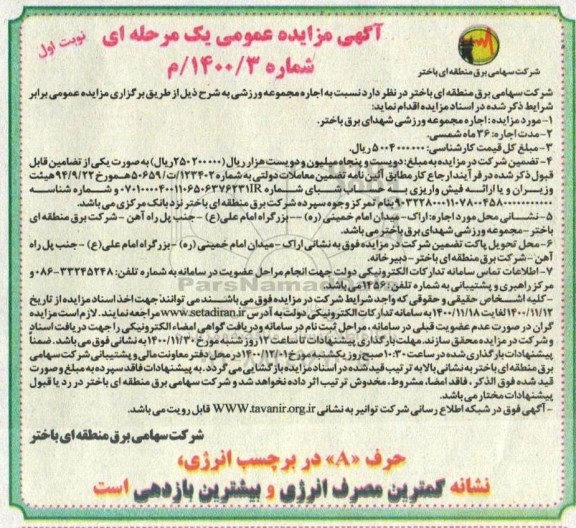 آگهی مزایده عمومی یک مرحله ای
نوبت اول
شماره ۱۴۰۰/۳/م
شرکت سهامی برق منطقه ای باختر
شرکت سهامی برق منطقه ای باختر در نظر دارد نسبت به اجاره مجموعه ورزشی به شرح ذیل از طریق برگزاری مزایده عمومی برابر
شرایط ذکر شده در اسناد مزایده اقدام نماید:
۱- مورد مزایده: اجاره مجموعه ورزشی شهدای برق باختر.
۲- مدت اجاره: ۳۶ ماه شمسی.
۳- مبلغ کل قیمت کارشناسی: ۵۰۰۴۰۰۰۰۰۰ ریال.
۴- تضمین شرکت در مزایده به مبلغ: دویست و پنجاه میلیون و دویست هزار ریال (۲۵۰۲۰۰۰۰۰ ریال) به صورت یکی از تضامین قابل
قبول ذکر شده در فرآیند ارجاع کار مطابق آئین نامه تضمین معاملات دولتی به شماره ۱۲۳۴۰۲/ت۵۰۶۵۹هـ مورخ ۹۴/۹/۲۲ هیئت
وزیران و یا ارائه فیش واریزی به حساب شبای شماره IR۰۷۰۱۰۰۰۰۴۰۰۱۱۰۶۵۰۶۳۷۶۲۳۱ و شماره شناسه
بنام تمرکز وجوه سپرده شرکت برق منطقه ای باختر نزد بانک مرکزی می باشد.
۵- نشانی محل مورد اجاره: اراک- میدان امام خمینی (ره) -- بزرگراه امام علی(ع) - جنب پل راه آهن - شرکت برق منطقه ای
باختر- مجموعه ورزشی شهدای برق باختر می باشد.
۶- محل تحویل پاکت تضمین شرکت در مزایده فوق به نشانی اراک - میدان امام خمینی (ره) - بزرگراه امام علی(ع) - جنب پل راه
آهن - شرکت برق منطقه ای باختر - دبیرخانه.
۷- اطلاعات تماس سامانه تدارکات الکترونیکی دولت جهت انجام مراحل عضویت در سامانه به شماره تلفن: ۳۳۲۴۵۲۴۸-۰۸۶ و
مرکز راهبری و پشتیبانی به شماره تلفن: ۱۴۵۶ می باشد.
- کلیه اشخاص حقیقی و حقوقی که واجد شرایط شرکت در مزایده فوق می باشند می توانند جهت اخذ اسناد مزایده از تاریخ
۱۴۰۰/۱۱/۱۲ لغایت ۱۴۰۰/۱۱/۱۸ به سامانه تدارکات الکترونیکی دولت به آدرس www.setadiran.ir مراجعه نمایند. لازم است مزایده
گران در صورت عدم عضویت قبلی در سامانه، مراحل ثبت نام در سامانه و دریافت گواهی امضاء الکترونیکی را جهت دریافت اسناد
و شرکت در مزایده محقق سازند. مهلت بارگذاری پیشنهادات تا ساعت ۱۲ روز شنبه مورخ ۱۴۰۰/۱۱/۳۰ به نشانی فوق می باشد. ضمناً
پیشنهادات بارگذاری شده در ساعت ۱۰:۳۰ صبح روز یکشنبه مورخ ۱۴۰۰/۱۲/۰۱ در محل دفتر معاونت مالی و پشتیبانی شرکت سهامی
برق منطقه ای باختر به نشانی بالا به ترتیب قید شده در اسناد مزایده بازگشایی می گردد. به پیشنهادات فاقد سپرده به مبلغ و صورت
قید شده فوق الذکر، فاقد امضا، مشروط، مخدوش ترتیب اثر داده نخواهد شد و شرکت سهامی برق منطقه ای باختر در رد یا قبول
پیشنهادات مختار می باشد.
- آگهی فوق در شبکه اطلاع رسانی شرکت توانیر به نشانی WWW.tavanir.org.ir قابل رویت می باشد.
شرکت سهامی برق منطقه ای باختر
حرف «A» در برچسب انرژی،
نشانه کمترین مصرف انرژی و بیشترین بازدهی است